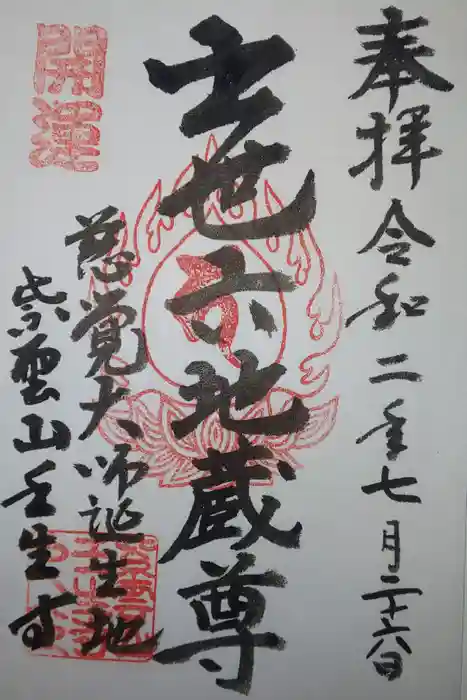 奉拝 令和二年七月二十六日
士世六地蔵尊
慈覚大师誕生地
紫雲山壬生寺
開運